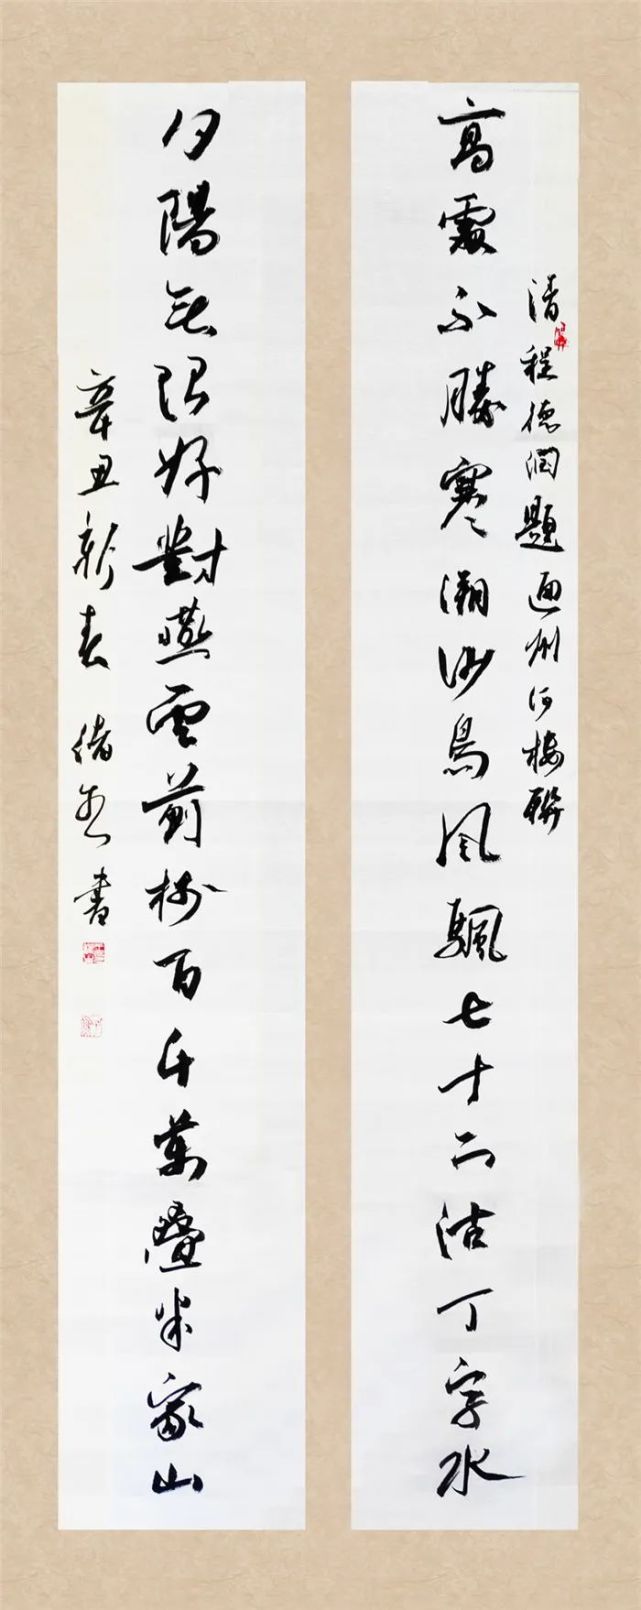 清程德潤題通州河樓聯
高處不勝寒溯沙鳥風颿七十二沽丁字水
夕陽無限好對燕雲薊樹百千萬疊米家山
辛丑新春 書